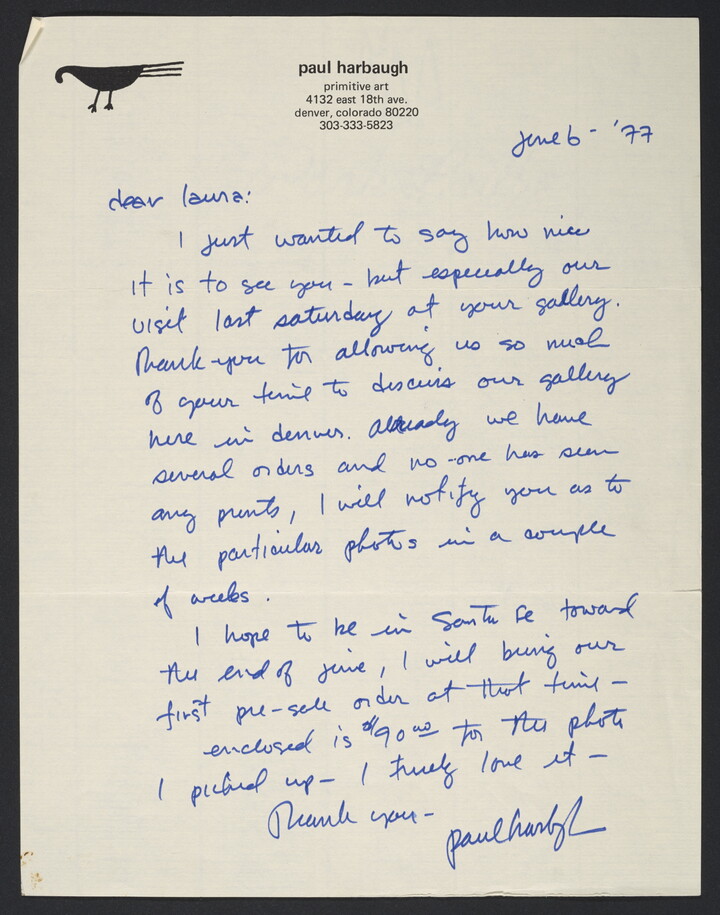 paul harbaugh
primitive art
4132 east 18th ave.
denver, colorado 80220
303-333-5823
june 6 - '77
dear laura:
I just wanted to say how nice
it is to see you - but especially our
visit last saturday at your gallery.
Thank-you for allowing us so much
of your time to discuss our gallery
here in denver. Already we have
several orders and no-one has seen
any prints, I will notify you as to
the particular photos in a couple
of weeks.
I hope to be in Santa Fe toward
the end of june, I will bring our
first pre-sale order at that time -
enclosed is $90.00 for the photo
I picked up - I truely love it -
Thank you -
paul harbgh